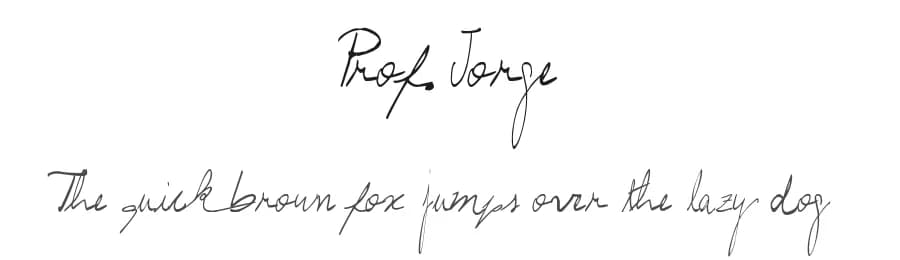 Prof. Jorge
The quick brown fox jumps over the lazy dog